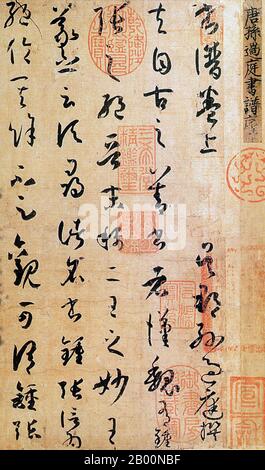 唐孫過庭書譜序
書譜卷上 吳郡孫過庭撰
夫自古之善書者漢魏有鍾
張之絕晉末稱二王之妙王
羲之云頃尋諸名書鍾張信為
絕倫其餘不足觀可謂鍾張
alamy
Image ID: 2B00NBF
www.alamy.com